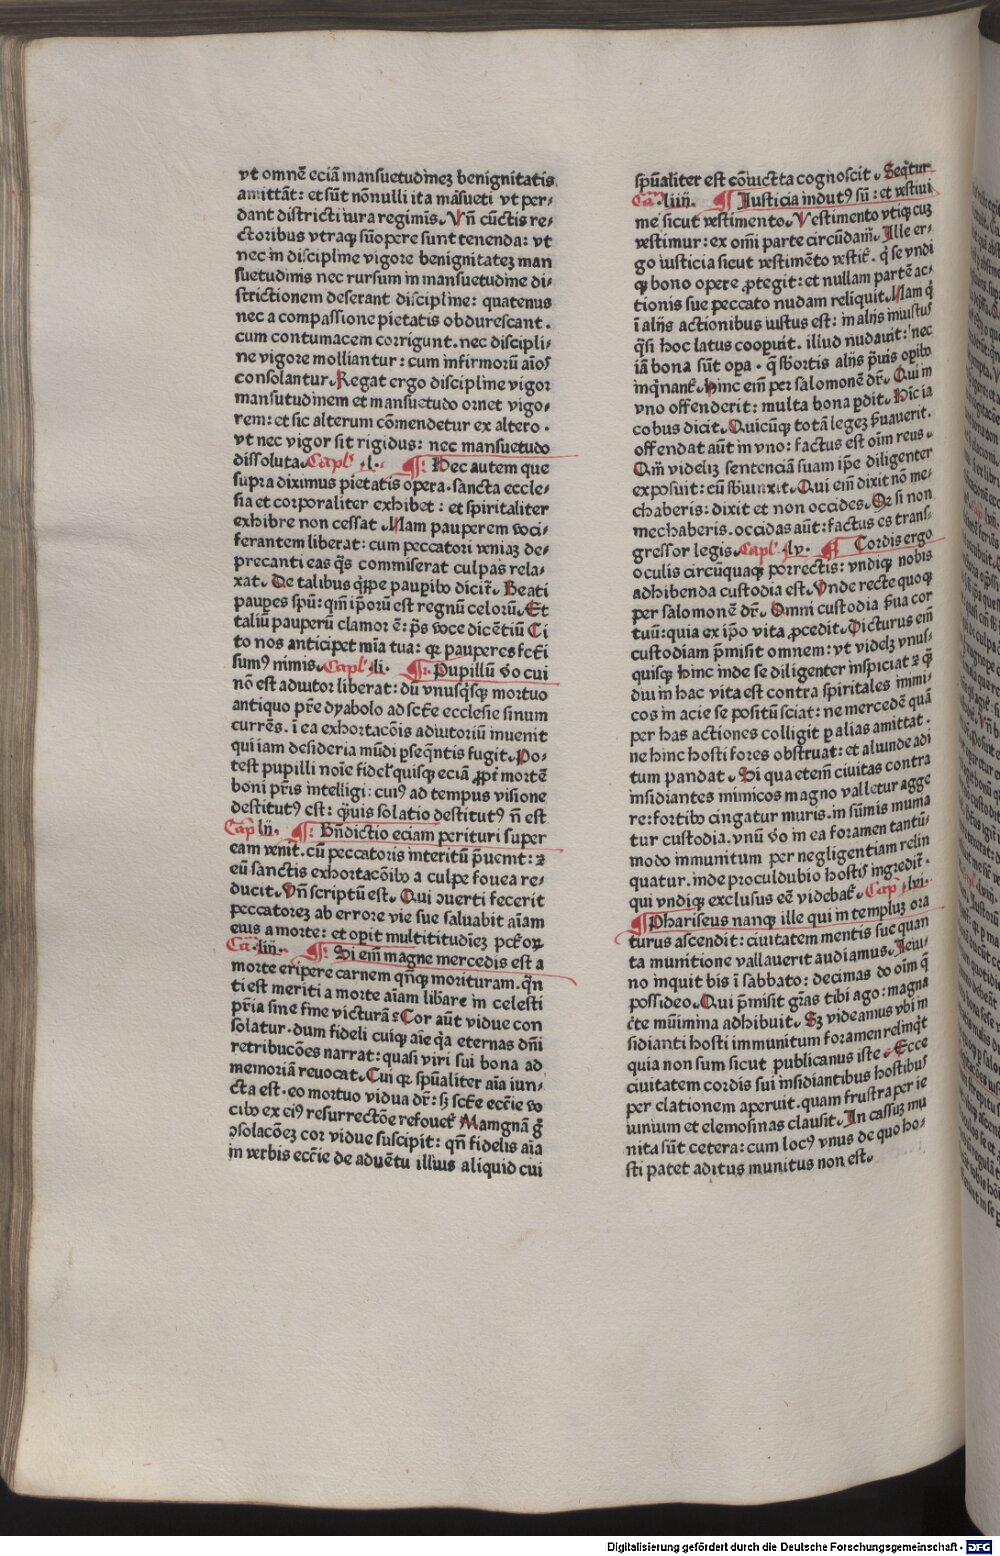 vt omnē eciā mansuetudinez benignitatis
amittāt: et sūt nōnulli ita māsueti vt per⸗
dant districti iura regimīs. Vn̄ cūctis re⸗
ctoribus vtraqȝ sūopere sunt tenenda: vt
nec in discipline vigore benignitatez man
suetudinis nec rursum in mansuetudine di⸗
strictionem deserant discipline: quatenus
nec a compassione pietatis obdurescant.
cum contumacem corrigunt. nec discipli⸗
ne vigore molliantur: cum infirmorū aīos
consolantur. Regat ergo discipline vigor
mansutudinem et mansuetudo ornet vigo⸗
rem: et sic alterum cōmendetur ex altero.
vt nec vigor sit rigidus: nec mansuetudo
dissoluta. Capl' .l. ¶ Hec autem que
supra diximus pietatis opera. sancta eccle⸗
sia et corporaliter exhibet: et spiritaliter
exhibre non cessat. Nam pauperem voci⸗
ferantem liberat: cum peccatori veniaz de⸗
precanti eas q̄s commiserat culpas rela⸗
xat. De talibus q̄ppe paupībo dicit͛. Beati
paupes spū: qm̄ ip̄orū est regnū celorū. Et
taliū pauperū clamor ē: p̄s voce dicētiū Ci
to nos anticipet mīa tua: qr pauperes fct̄i
sumꝰ nimis. Capl' .li. ¶ Pupillū v̄o cui
nō est adiutor liberat: dū vnusq̄sqȝ mortuo
antiquo pr̄e dyabolo ad sct̄e ecclesie sinum
currēs. ī ea exhortacōis adiutoriū inuenit
qui iam desideria mūdi ꝑseq̄ntis fugit. Po⸗
test pupilli noīe fidel'quisqȝ eciā ꝓpt̄ mortē
boni pr̄is intelligi: cuiꝰ ad tempus visione
destitutꝰ est: q̄uis solatio destitutꝰ n̄ est
Capl' lij. ¶ Bn̄dictio eciam perituri super
eam venit. cū peccatoris interitū p̄uenit: ⁊
eū sanctis exhortacōibo a culpe fouea re⸗
ducit. Vn̄ scriptū est. Qui ꝯuerti fecerit
peccatorez ab errore vie sue saluabit aīam
eius a morte: et opīt multitudīez pct̄oꝝ
Ca. liij. ¶ Si eīm magne mercedis est a
morte eripere carnem qn̄qȝ morituram. qn̄
ti est meriti a morte aīam lib̄are in celesti
pr̄ia sine fine victurā? Cor aūt vidue con
solatur. dum fideli cuiqȝ aīe q̄a eternas dn̄i
retribucōes narrat: quasi viri sui bona ad
memoriā reuocat. Cui qr spūaliter aīa iun⸗
cta est. eo mortuo vidua dr̄: sȝ sct̄e ecc̄ie vo
cibo ex eiꝰ resurrectōe refouet͛ Mamgnā g̊
ꝯsolacōez cor vidue suscipit: qn̄ fidelis aīa
in verbis ecc̄ie de aduētu illius aliquid cui
spūaliter est cōiuctta cognoscit. Seq̄tur
Ca. liiij. ¶ Iusticia indutꝰ sū: et vestiui
me sicut vestimento. Vestimento vtiqȝ cuȝ
vestimur: ex omī parte circūdam͛. Ille er⸗
go iusticia sicut vestimēto vestit͛. q̄ se vndi
qȝ bono opere ꝓtegit: et nullam partē ac⸗
tionis sue peccato nudam reliquit. Nam q̄
ī alijs actionibus iustus est: in alijs iniustꝰ
q̄si hoc latus cooꝑuit. illud nudauit: nec
iā bona sūt oꝑa. q̄ sbortis alijs p̄uis opībo
inq̄nant͛. Hinc eīm per salomonē dr̄. Qui in
vno offenderit: multa bona ꝑdit. Hīc ia
cobus dicit. Quicūqȝ totā legeȝ ẜuauerit.
offendat aūt in vno: factus est oīm reus.
Qm̄ videlȝ sentenciā suam ip̄e diligenter
exposuit: cū sbiunxit. Qui eīm dixit nō me⸗
chaberis: dixit et non occides. Qr si non
mechaberis. occidas aūt: factus es trans⸗
gressor legis. Capl' .lv. ¶ Cordis ergo
oculis circūquaqȝ porrectis: vndiqȝ nobis
adhibenda custodia est. Vnde recte quoqȝ
per salomonē dr̄. Omni custodia ẜua cor
tuū: quia ex ip̄o vita ꝓcedit. Dicturus eīm
custodiam p̄misit omnem: vt videlȝ vnus⸗
quisqȝ hinc inde se diligenter inspiciat ⁊ q̄
diu in hac vita est contra spiritales inimi⸗
cos in acie se positū sciat: ne mercedē quā
per has actiones colligit ꝑ alias amittat.
ne hinc hosti fores obstruat: et aliunde adi
tum pandat. Si qua etenīm ciuitas contra
insidiantes inimicos magno valletur agge
re: fortibo cingatur muris. in sūmis muma
tur custodia. vnū v̄o in ea foramen tantū⸗
modo immunitum per negligentiam relin
quatur. inde proculdubio hostis ingredit͛.
qui vndiqȝ exclusus eē videbat͛. Cap. lvi.
¶ Phariseus nanqȝ ille qui in templuȝ ora
turus ascendit: ciuitatem mentis sue quan
ta munitione vallauerit audiamus. Ieiu⸗
no inquit bis ī sabbato: decimas do oīm q̄
possideo. Qui p̄misit gr̄as tibi ago: magna
c̄te mūimina adhibuit. Sȝ videamus vbi in
sidianti hosti immunitum foramen relinq̄t
quia non sum sicut publicanus iste. Ecce
ciuitatem cordis sui insidiantibus hostibus
per elationem aperuit. quam frustra per ie
iunium et elemosinas clausit. In cassuȝ mu
nita sūt cetera: cum locꝰ vnus de quo ho⸗
sti patet aditus munitus non est.
Digitalisierung gefördert durch die Deutsche Forschungsgemeinschaft - DFG